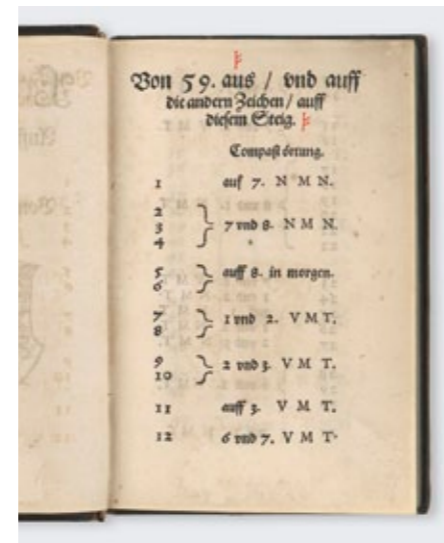 Von 59. aus / vnd auff
die andern Zeichen / auff
diesem Steig.
Compaſt örtung.
1 auf 7. N M N.
2
3 7 vnd 8. N M N.
4
5 auff 8. in morgen.
6
7 1 vnd 2. V M T.
8
9 2 vnd 3. V M T.
10
11 auff 3. V M T.
12 6 vnd 7. V M T.